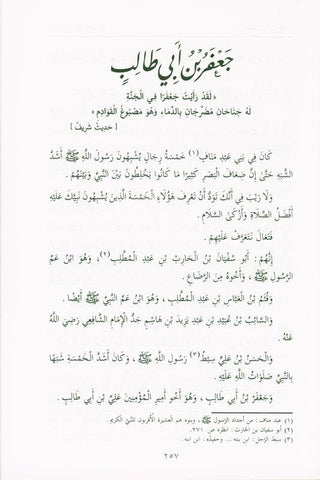 جَعْفَرُ بْنُ أَبِي طَالِبٍ
« لَقَدْ رَأَيْتُ جَعْفَرًا فِي الْجَنَّةِ
لَهُ جَنَاحَانِ مُضَرَّجَانِ بِالدِّمَاءِ وَهُوَ مَصْبُوغُ الْقَوَادِمِ »
[ حديث شريف ]
كَانَ فِي بَنِي عَبْدِ مَنَافٍ (١) خَمْسَةُ رِجَالٍ يُشْبِهُونَ رَسُولَ اللَّهِ ﷺ أَشَدَّ
الشَّبَهِ حَتَّى إِنَّ ضِعَافَ الْبَصَرِ كَثِيرًا مَا كَانُوا يَخْلِطُونَ بَيْنَ النَّبِيِّ وَبَيْنَهُمْ .
وَلَا رَيْبَ فِي أَنَّكَ تَوَدُّ أَنْ تَعْرِفَ هَؤُلَاءِ الْخَمْسَةَ الَّذِينَ يُشْبِهُونَ نَبِيَّكَ عَلَيْهِ
أَفْضَلُ الصَّلَاةِ وَأَزْكَى السَّلَامِ .
فَتَعَالَ نَتَعَرَّفْ عَلَيْهِمْ .
إِنَّهُمْ : أَبُو سُفْيَانَ بْنُ الْحَارِثِ بْنِ عَبْدِ الْمُطَّلِبِ (٢) ، وَهُوَ ابْنُ عَمِّ
الرَّسُولِ ﷺ ، وَأَخُوهُ مِنَ الرَّضَاعِ .
وَقُثَمُ بْنُ الْعَبَّاسِ بْنِ عَبْدِ الْمُطَّلِبِ ، وَهُوَ ابْنُ عَمِّ النَّبِيِّ ﷺ أَيْضًا .
وَالسَّائِبُ بْنُ عُبَيْدِ بْنِ عَبْدِ يَزِيدَ بْنِ هَاشِمٍ جَدُّ الْإِمَامِ الشَّافِعِي رَضِيَ اللَّهُ
عَنْهُ .
وَالْحَسَنُ بْنُ عَلِيٍّ سِبْطُ (٣) رَسُولِ اللَّهِ ﷺ ، وَكَانَ أَشَدَّ الْخَمْسَةِ شَبَهًا
بِالنَّبِيِّ صَلَوَاتُ اللَّهِ عَلَيْهِ .
وَجَعْفَرُ بْنُ أَبِي طَالِبٍ ، وَهُوَ أَخُو أَمِيرِ الْمُؤْمِنِينَ عَلِيِّ بْنِ أَبِي طَالِبٍ .
(١) عبد مناف : من أجداد الرسول ﷺ ، وبنوه هم العشيرة الأقربون للنبي الكريم .
(٢) أبو سفيان بن الحارث : انظره ص ٢٧١ .
(٣) سبط الرجل : ابن بنته ... وحفيده : ابن ابنه .
٢٥٧